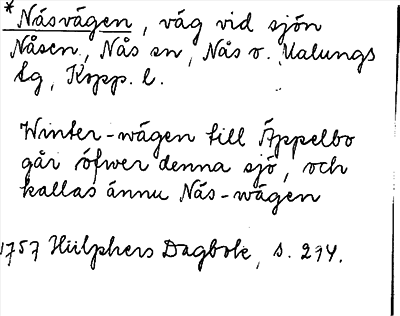 *Näsvägen, väg vid sjön
Nåsen, Nås sn, Nås o. Malungs
tg, Kopp. l.
Winter-wägen till Äppelbo
går öfwer denna sjö, och
kallas ännu Näs-wägen
1757 Hülphers Dagbok, s. 294.